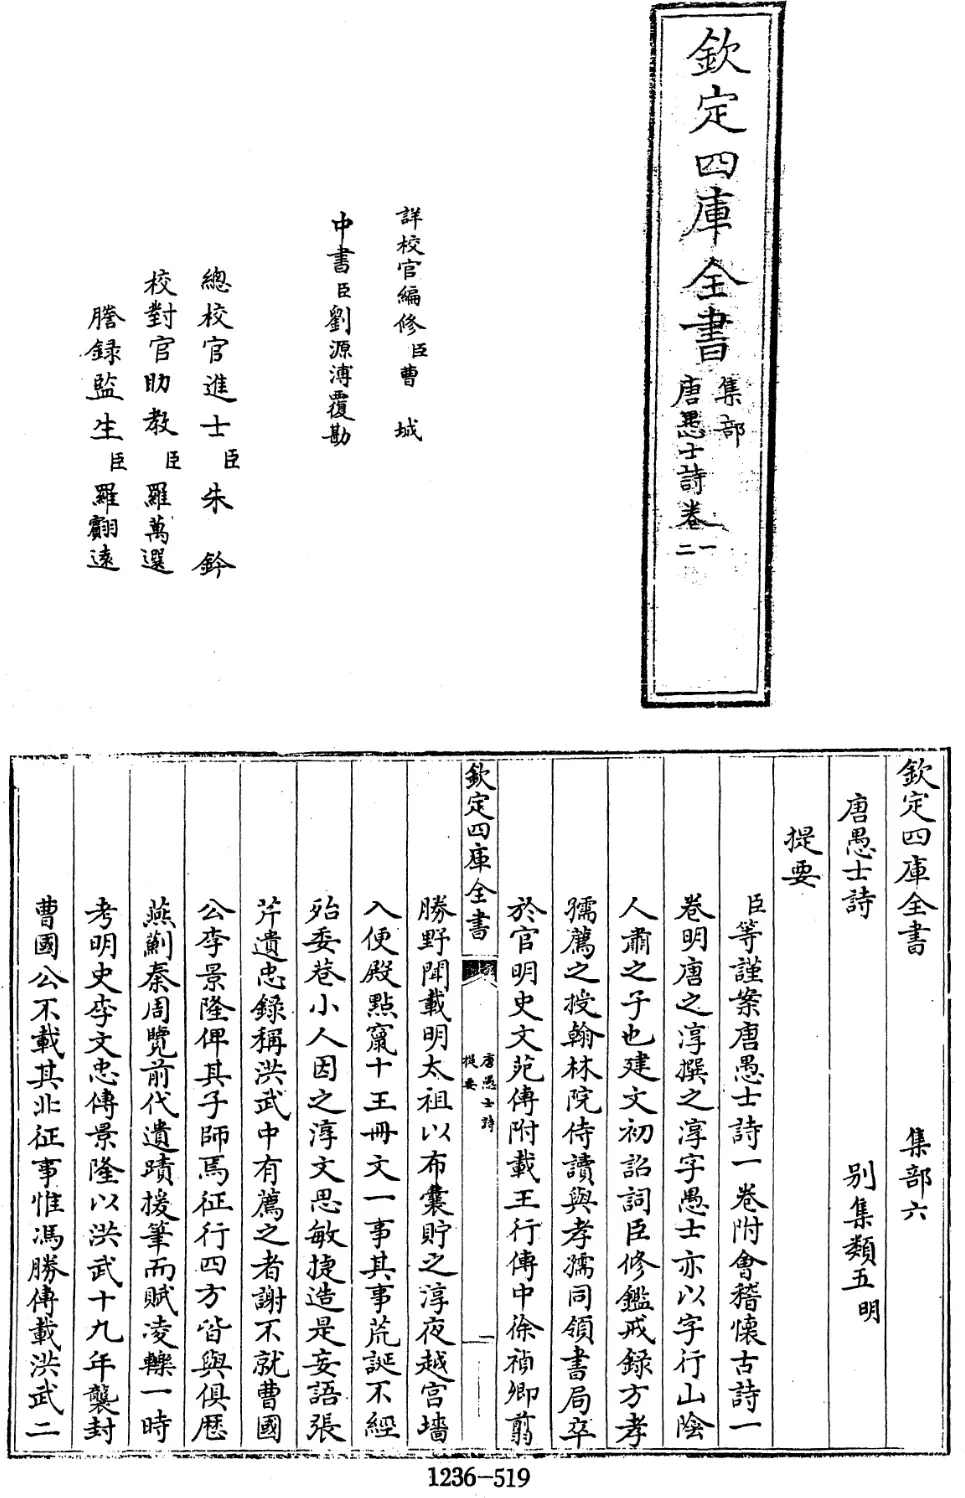 欽定四庫全書
集部
唐愚士詩卷一二
詳校官編修臣曹城
中書臣劉源溥覆勘
總校官進士臣朱鈐
校對官助教臣羅萬選
謄錄監生臣羅翽遠
欽定四庫全書 集部六
唐愚士詩 別集類五明
提要
臣等謹案唐愚士詩一卷附會稽懷古詩一
卷明唐之淳撰之淳字愚士亦以字行山陰
人肅之子也建文初詔詞臣修鑑戒録方孝
孺薦之授翰林院侍讀與孝孺同領書局卒
於官明史文苑傳附載王行傳中徐禎卿翦
欽定四庫全書
唐愚士詩
提要
一
勝野聞載明太祖以布囊貯之淳夜越宫墻
入便殿點竄十王冊文一事其事荒誕不經
殆委巷小人因之淳文思敏捷造是妄語張
芹遺忠録稱洪武中有薦之者謝不就曹國
公李景隆俾其子師焉征行四方皆與俱歴
燕薊秦周覽前代遺蹟援筆而賦凌轢一時
考明史李文忠傳景隆以洪武十九年襲封
曹國公不載其北征事惟馮勝傳載洪武二
1236-519